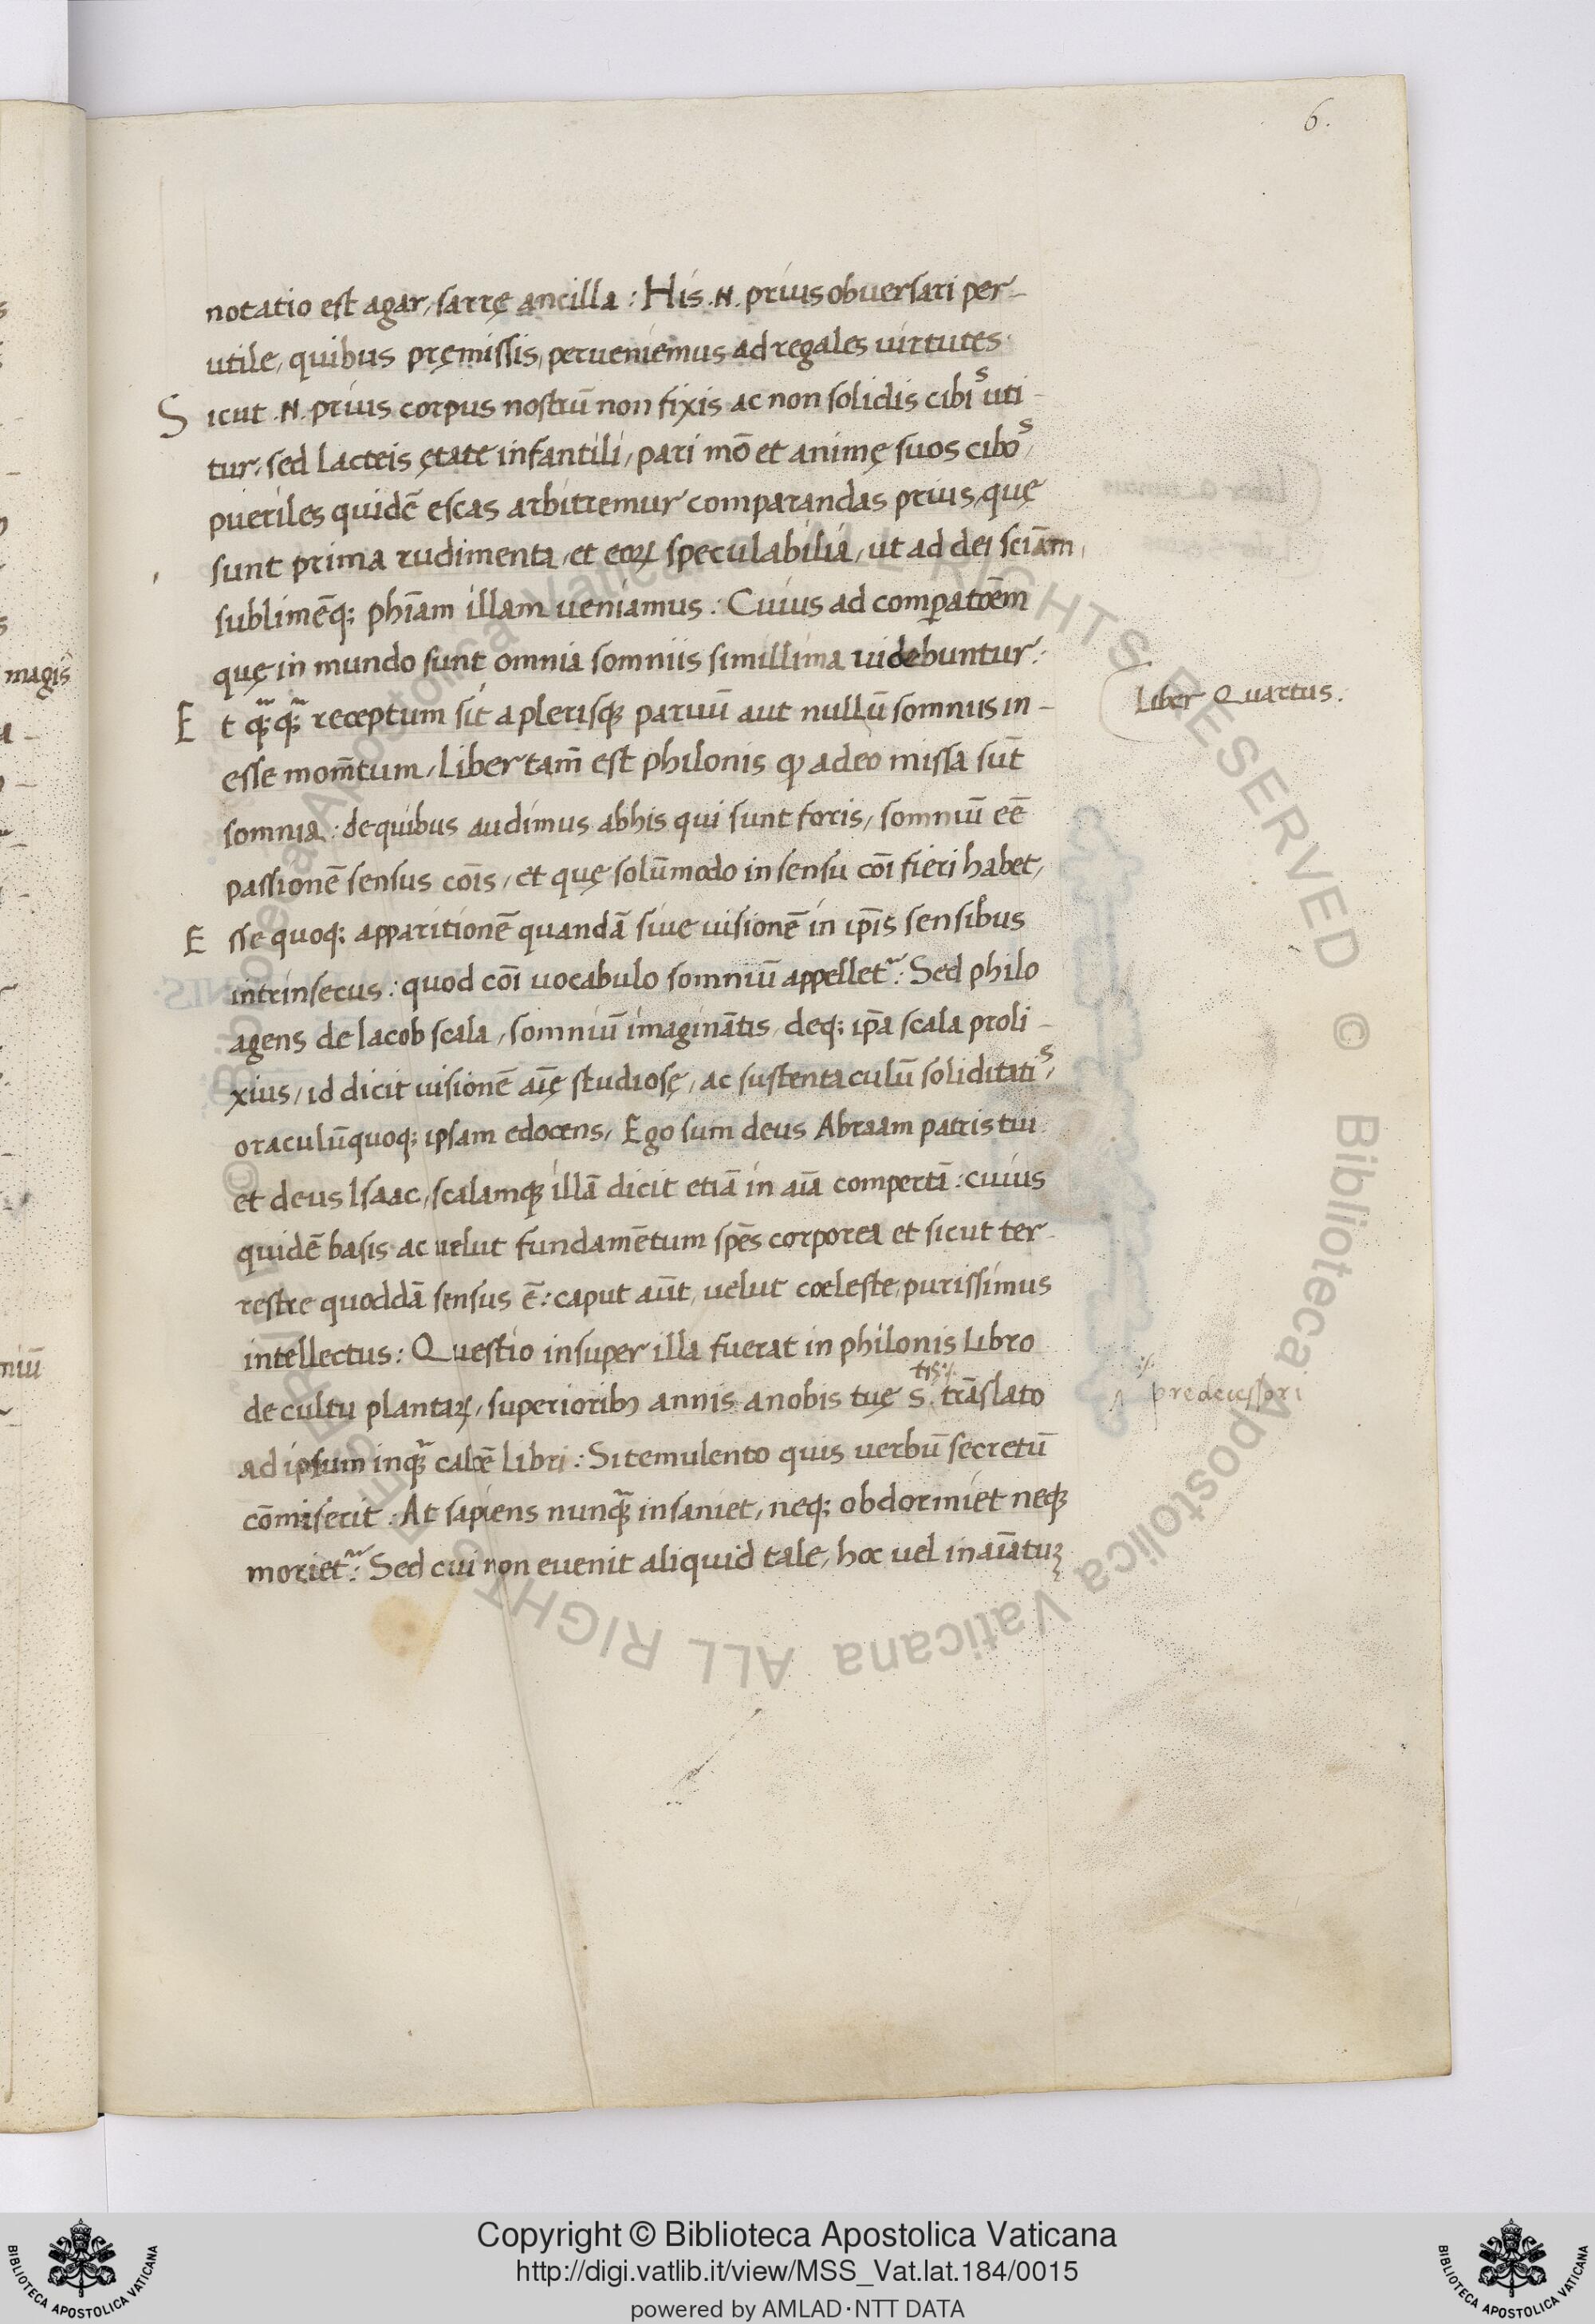 6.
notatio est agar, sarrę ancilla : His .N. prius obversari per-
utile, quibus pręmissis, perveniemus ad regales virtutes.
Sicut .N. prius corpus nostrū non fixis ac non solidis cibis uti-
tur, sed lacteis ętate infantili, pari mō et animę suos cibos,
pueriles quidē escas arbitremur comparandas prius, quę
sunt prima rudimenta, et eoꝝ speculabilia, ut ad dei sciām,
sublimēq; phīam illam veniamus : Cuius ad comꝑatōem
quę in mundo sunt omnia somniis simillima videbuntur :
Et q̃q̃ receptum sit a plerisq; parvū aut nullū somnus in-
esse mom̄tum, Liber tam̄ est philonis ꝙ a deo missa sūt
somnia : de quibus audimus ab his qui sunt foris, somniū eē
passionē sensus cōis, et quę solūmodo in sensu cōi fieri habet,
Esse quoq; apparitionē quandā sive visionē in ip̄is sensibus
intrinsecus : quod cōi vocabulo somniū appellet᷑ : Sed philo
agens de Iacob scala, somniū imaginātis, deq; ip̄a scala proli-
xius, id dicit visionē aīę studiosę, ac sustentaculū soliditatis,
oraculūquoq; ipsam edocens, Ego sum deus Abraam patris tui
et deus Isaac, scalamq; illā dicit etiā in aīa compertā : cuius
quidē basis ac velut fundamētum spēs corporea et sicut ter-
restre quoddā sensus ē : caput aūt, velut cœleste, purissimus
intellectus : Questio insuper illa fuerat in philonis Libro
de cultu plantaꝝ, superiorib⁊ annis a nobis tuę S.tis trāslato
ad ipsum inq̃ calcē libri : Si temulento quis verbū secretū
cōmiserit : At sapiens nunq̃ insaniet, neq; obdormiet neq;
moriet᷑ : Sed cui non evenit aliquid tale, hoc vel in aīatuꝝ
Liber Quartus.
predecessori
magis
niū
© Biblioteca Apostolica Vaticana ALL RIGHTS RESERVED
Copyright © Biblioteca Apostolica Vaticana
http://digi.vatlib.it/view/MSS_Vat.lat.184/0015
powered by AMLAD·NTT DATA
BIBLIOTECA APOSTOLICA VATICANA
BIBLIOTECA APOSTOLICA VATICANA